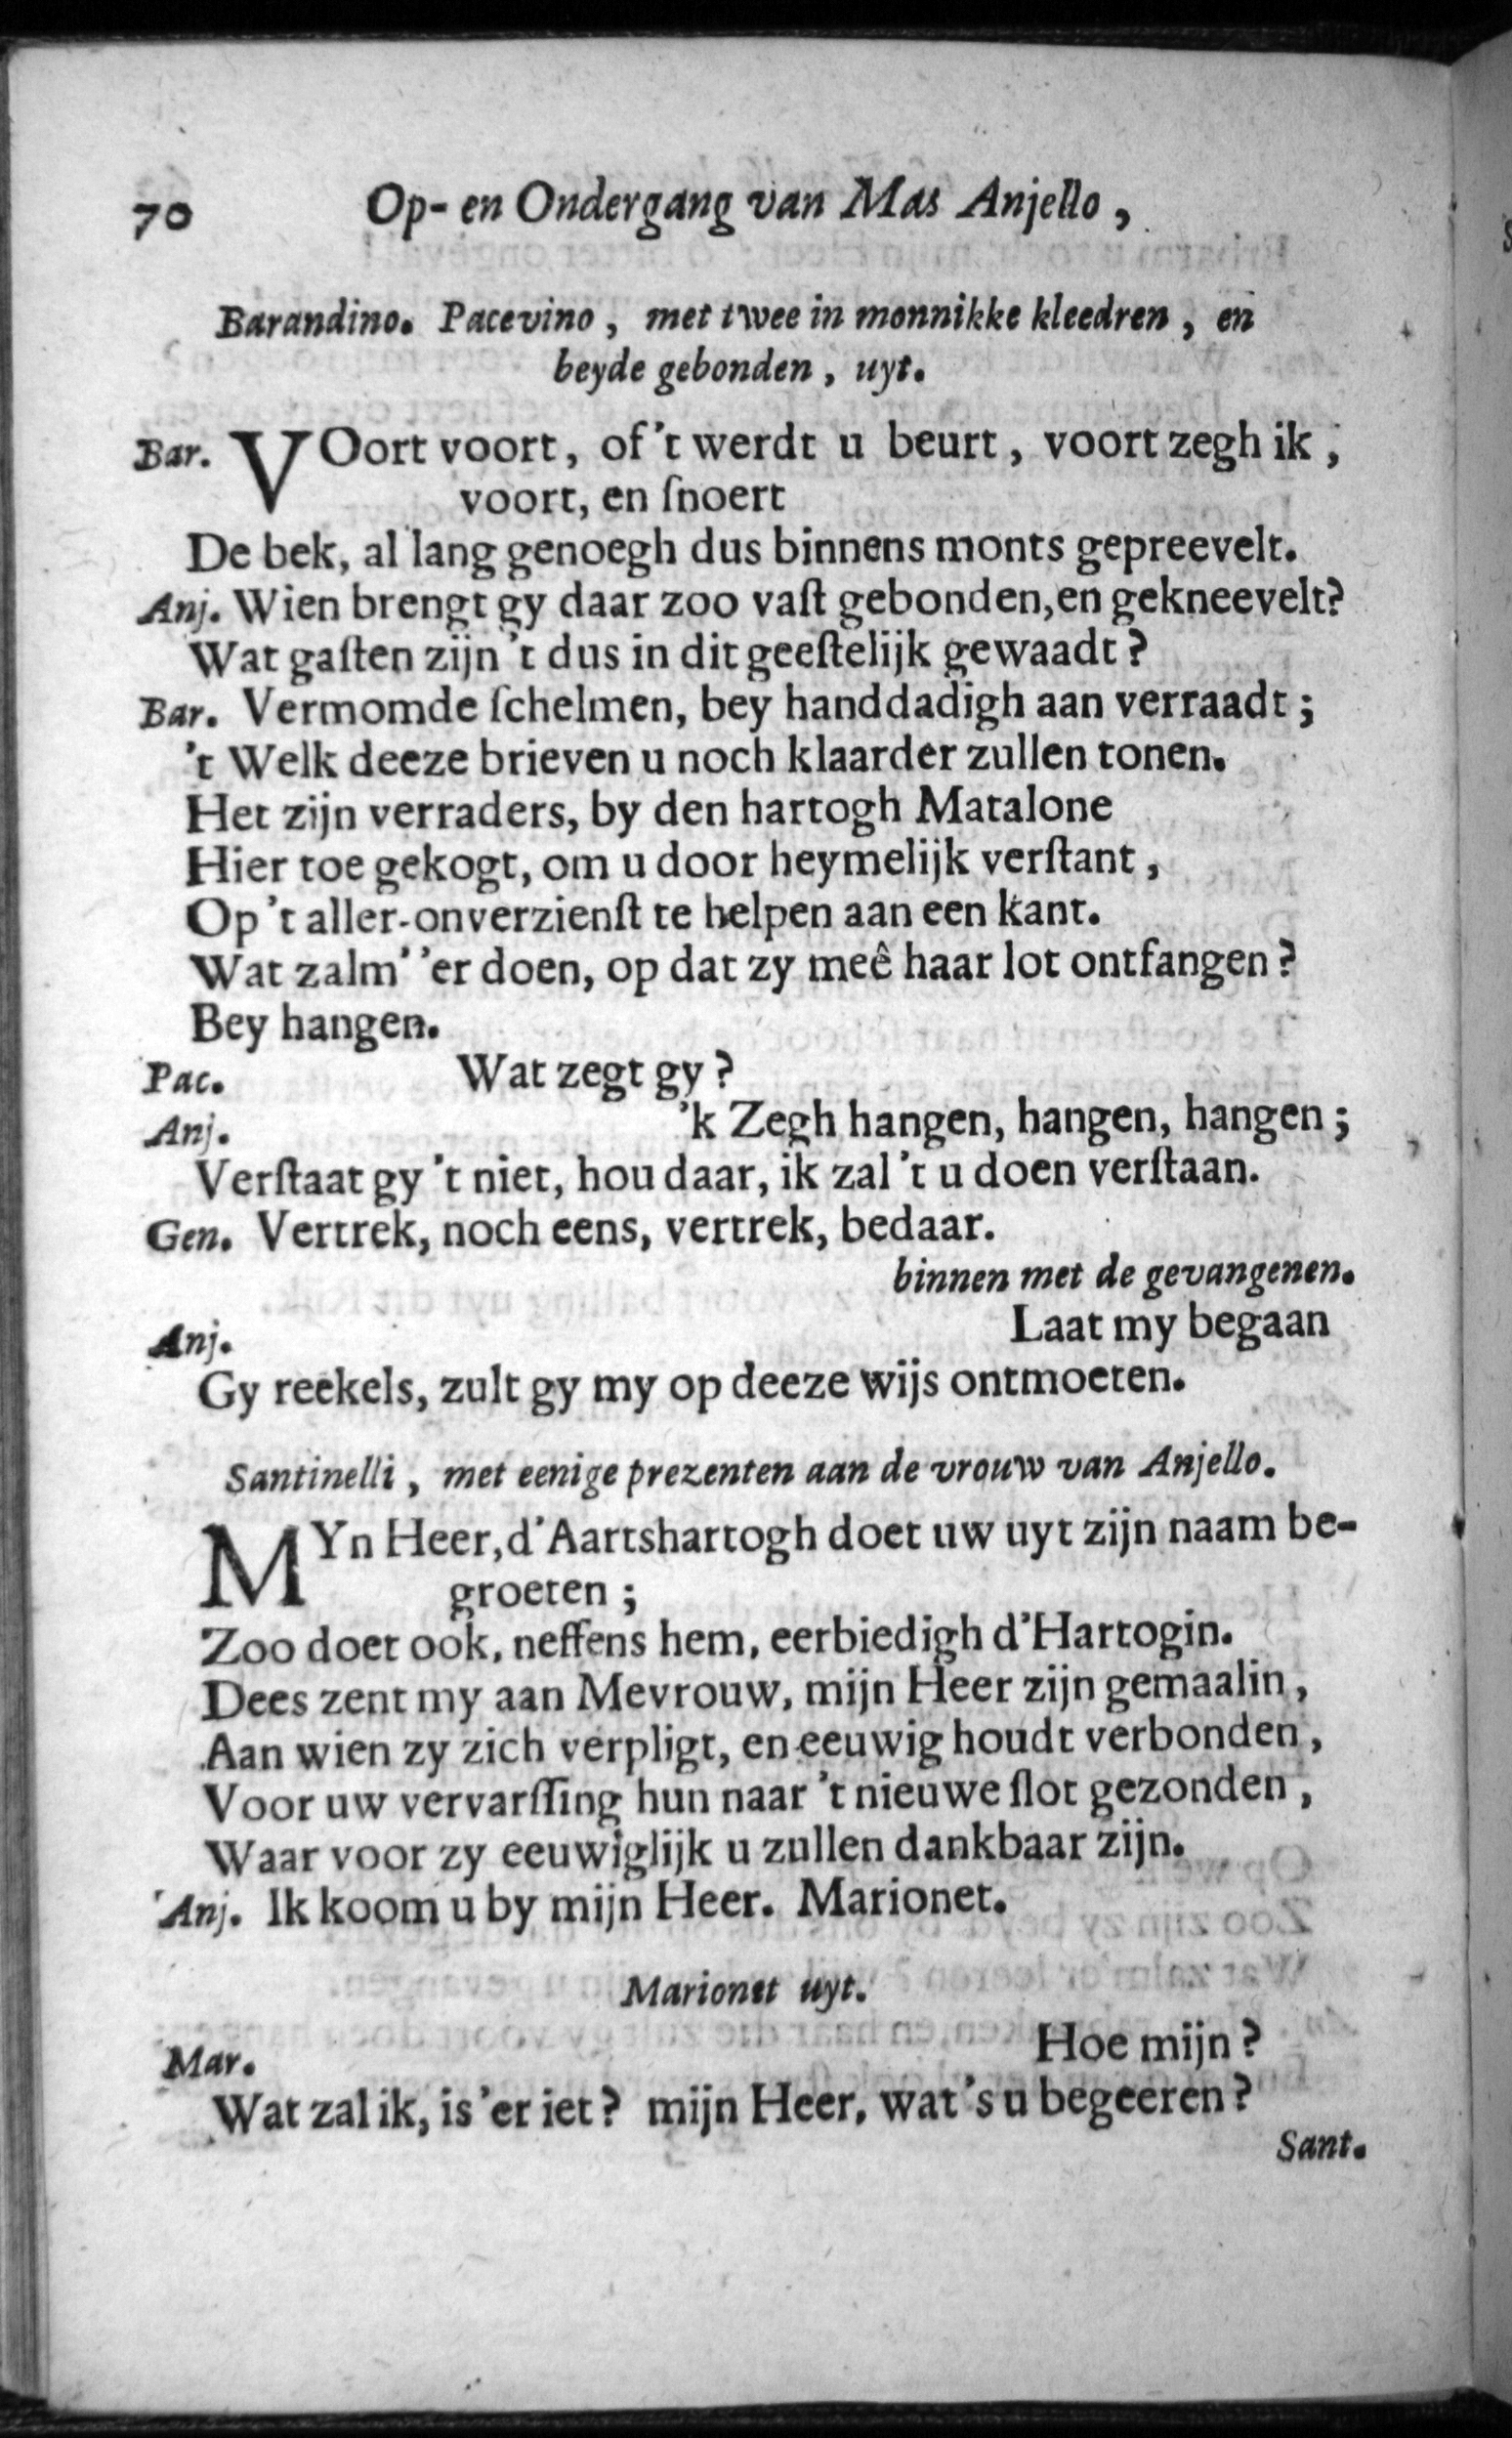 70 Op- en Ondergang van Mas Anjello,
Barandino. Pacevino, met twee in monnikke kleedren, en
beyde gebonden, uyt.
Bar. VOort voort, of 't werdt u beurt, voort zegh ik,
voort, en ſnoert
De bek, al lang genoegh dus binnens monts gepreevelt.
Anj. Wien brengt gy daar zoo vaſt gebonden, en gekneevelt?
Wat gaſten zijn 't dus in dit geeſtelijk gewaadt?
Bar. Vermomde ſchelmen, bey handdadigh aan verraadt;
't Welk deeze brieven u noch klaarder zullen tonen.
Het zijn verraders, by den hartogh Matalone
Hier toe gekogt, om u door heymelijk verſtant,
Op 't aller-onverzienſt te helpen aan een kant.
Wat zalm' 'er doen, op dat zy meê haar lot ontfangen?
Bey hangen.
Pac. Wat zegt gy?
Anj. 'k Zegh hangen, hangen, hangen;
Verſtaat gy 't niet, hou daar, ik zal 't u doen verſtaan.
Gen. Vertrek, noch eens, vertrek, bedaar.
binnen met de gevangenen.
Anj. Laat my begaan
Gy reekels, zult gy my op deeze wijs ontmoeten.
Santinelli, met eenige prezenten aan de vrouw van Anjello.
MYn Heer, d'Aartshartogh doet uw uyt zijn naam be-
groeten;
Zoo doet ook, neffens hem, eerbiedigh d'Hartogin.
Dees zent my aan Mevrouw, mijn Heer zijn gemaalin,
Aan wien zy zich verpligt, en eeuwig houdt verbonden,
Voor uw vervarſſing hun naar 't nieuwe ſlot gezonden,
Waar voor zy eeuwiglijk u zullen dankbaar zijn.
Anj. Ik koom u by mijn Heer. Marionet.
Marionet uyt.
Mar. Hoe mijn?
Wat zal ik, is 'er iet? mijn Heer, wat 's u begeeren?
Sant.